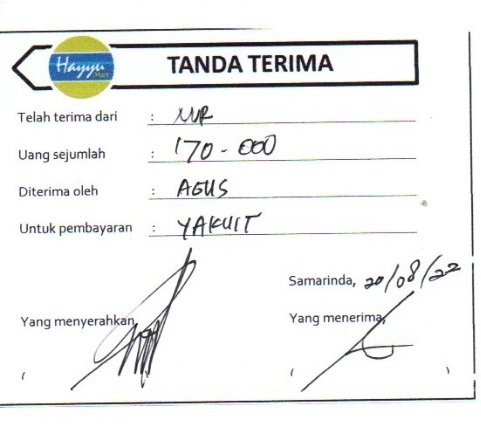 Hayyu Mart
TANDA TERIMA
Telah terima dari : NUR
Uang sejumlah : 170-000
Diterima oleh : AGUS
Untuk pembayaran : YAKULT
Samarinda, 20/08/22
Yang menyerahkan, Yang menerima,
( ( )